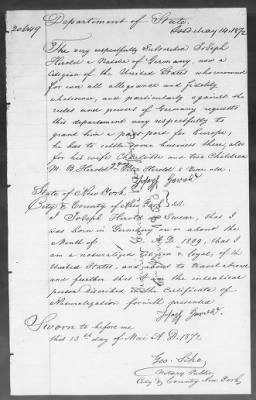 Department of State.
14, 1872
The very respectfully Subscriber Joseph
Herold a Native of Germany, now a
Citizen of the United States who renounced
for ever all allegiance and fidelity
whatsoever, and particularly against the
rules and powers of Germany requests
this department very respectfully to
grand him a pass pard for Europe,
he has to settle some business there, also
for his wife Charlotte and two Children
W. B. Herold &
State of New York
City & County of New York ss.
I Joseph Herold do Swear, that I
was born in Germany on or about the
Month of A.D. 1809, that I
am a naturalized Citizen & loyal, of the
United States, and about to travel abroad
and further that I am the identical
person described in the Certificate of
Naturalization forwith presented
Sworn to before me
this 13th day of Mai A.D. 1872
Geo.
Notary Public
City & County New York